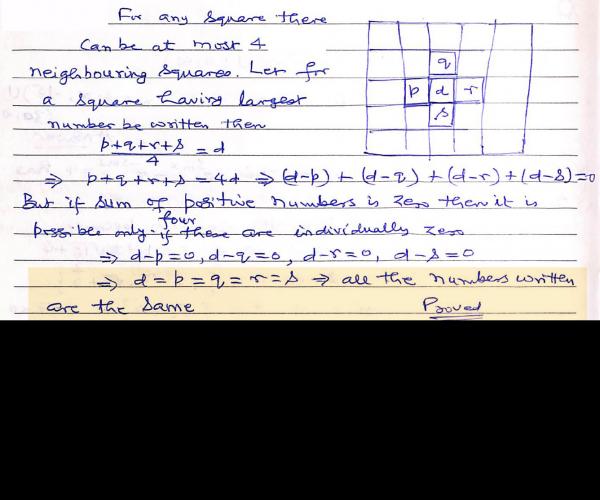 For any square there
can be at most 4
neighbouring squares. Let for
a square having largest
number be written then
p+q+r+s/4 = d
⇒ p+q+r+s = 4d ⇒ (d-p) + (d-q) + (d-r) + (d-s) = 0
But if sum of positive numbers is zero then it is
possible only if these four are individually zero
⇒ d-p=0, d-q=0, d-r=0, d-s=0
⇒ d = p = q = r = s ⇒ all the numbers written
are the same Proved
q
p d r
s